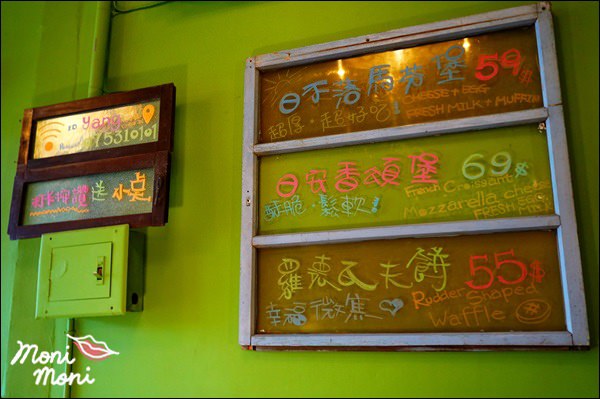 ID Yang
5310101
打卡按讚送小桌
日不落馬芬堡 59
CHEESE + EGG
超厚·超好吃!
FRESH MILK + MUFFIN
日安香頌堡 69$
French Croissant
酥脆·鬆軟!
Mozzarella cheese
羅德瓦夫餅 55
幸福微焦
Rudder Shaped
Waffle
Moni
Moni